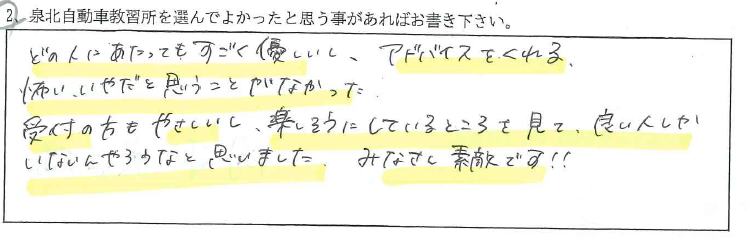 2. 泉北自動車教習所を選んでよかったと思う事があればお書き下さい。
どの人にあたってもすごく優しいし、アドバイスをくれる、
怖い、いやだと思うことがなかった
受付の方もやさしいし、楽しそうにしているところを見て、良い人しか
いないんやろうなと思いました. みなさん素敵です!!